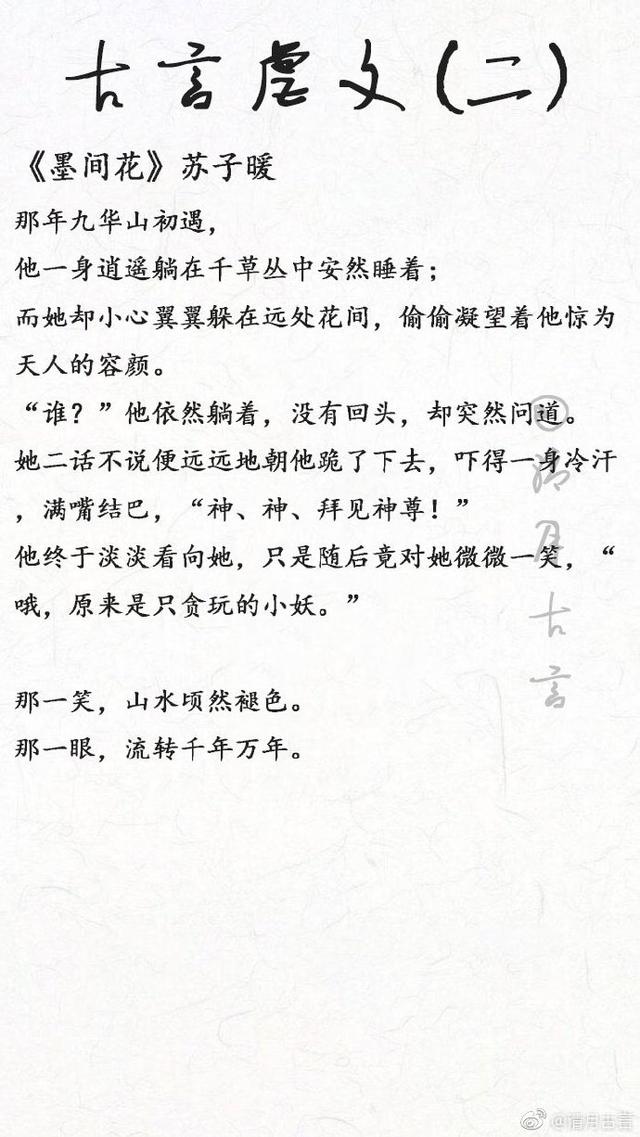 古言虐文(二)
《墨间花》苏子暖
那年九华山初遇，
他一身逍遥躺在千草丛中安然睡着；
而她却小心翼翼躲在远处花间，偷偷凝望着他惊为
天人的容颜。
“谁？”他依然躺着，没有回头，却突然问道。
她二话不说便远远地朝他跪了下去，吓得一身冷汗
，满嘴结巴，“神、神、拜见神尊！”
他终于淡淡看向她，只是随后竟对她微微一笑，“
哦，原来是只贪玩的小妖。”
那一笑，山水顷然褪色。
那一眼，流转千年万年。
月古言
月古言